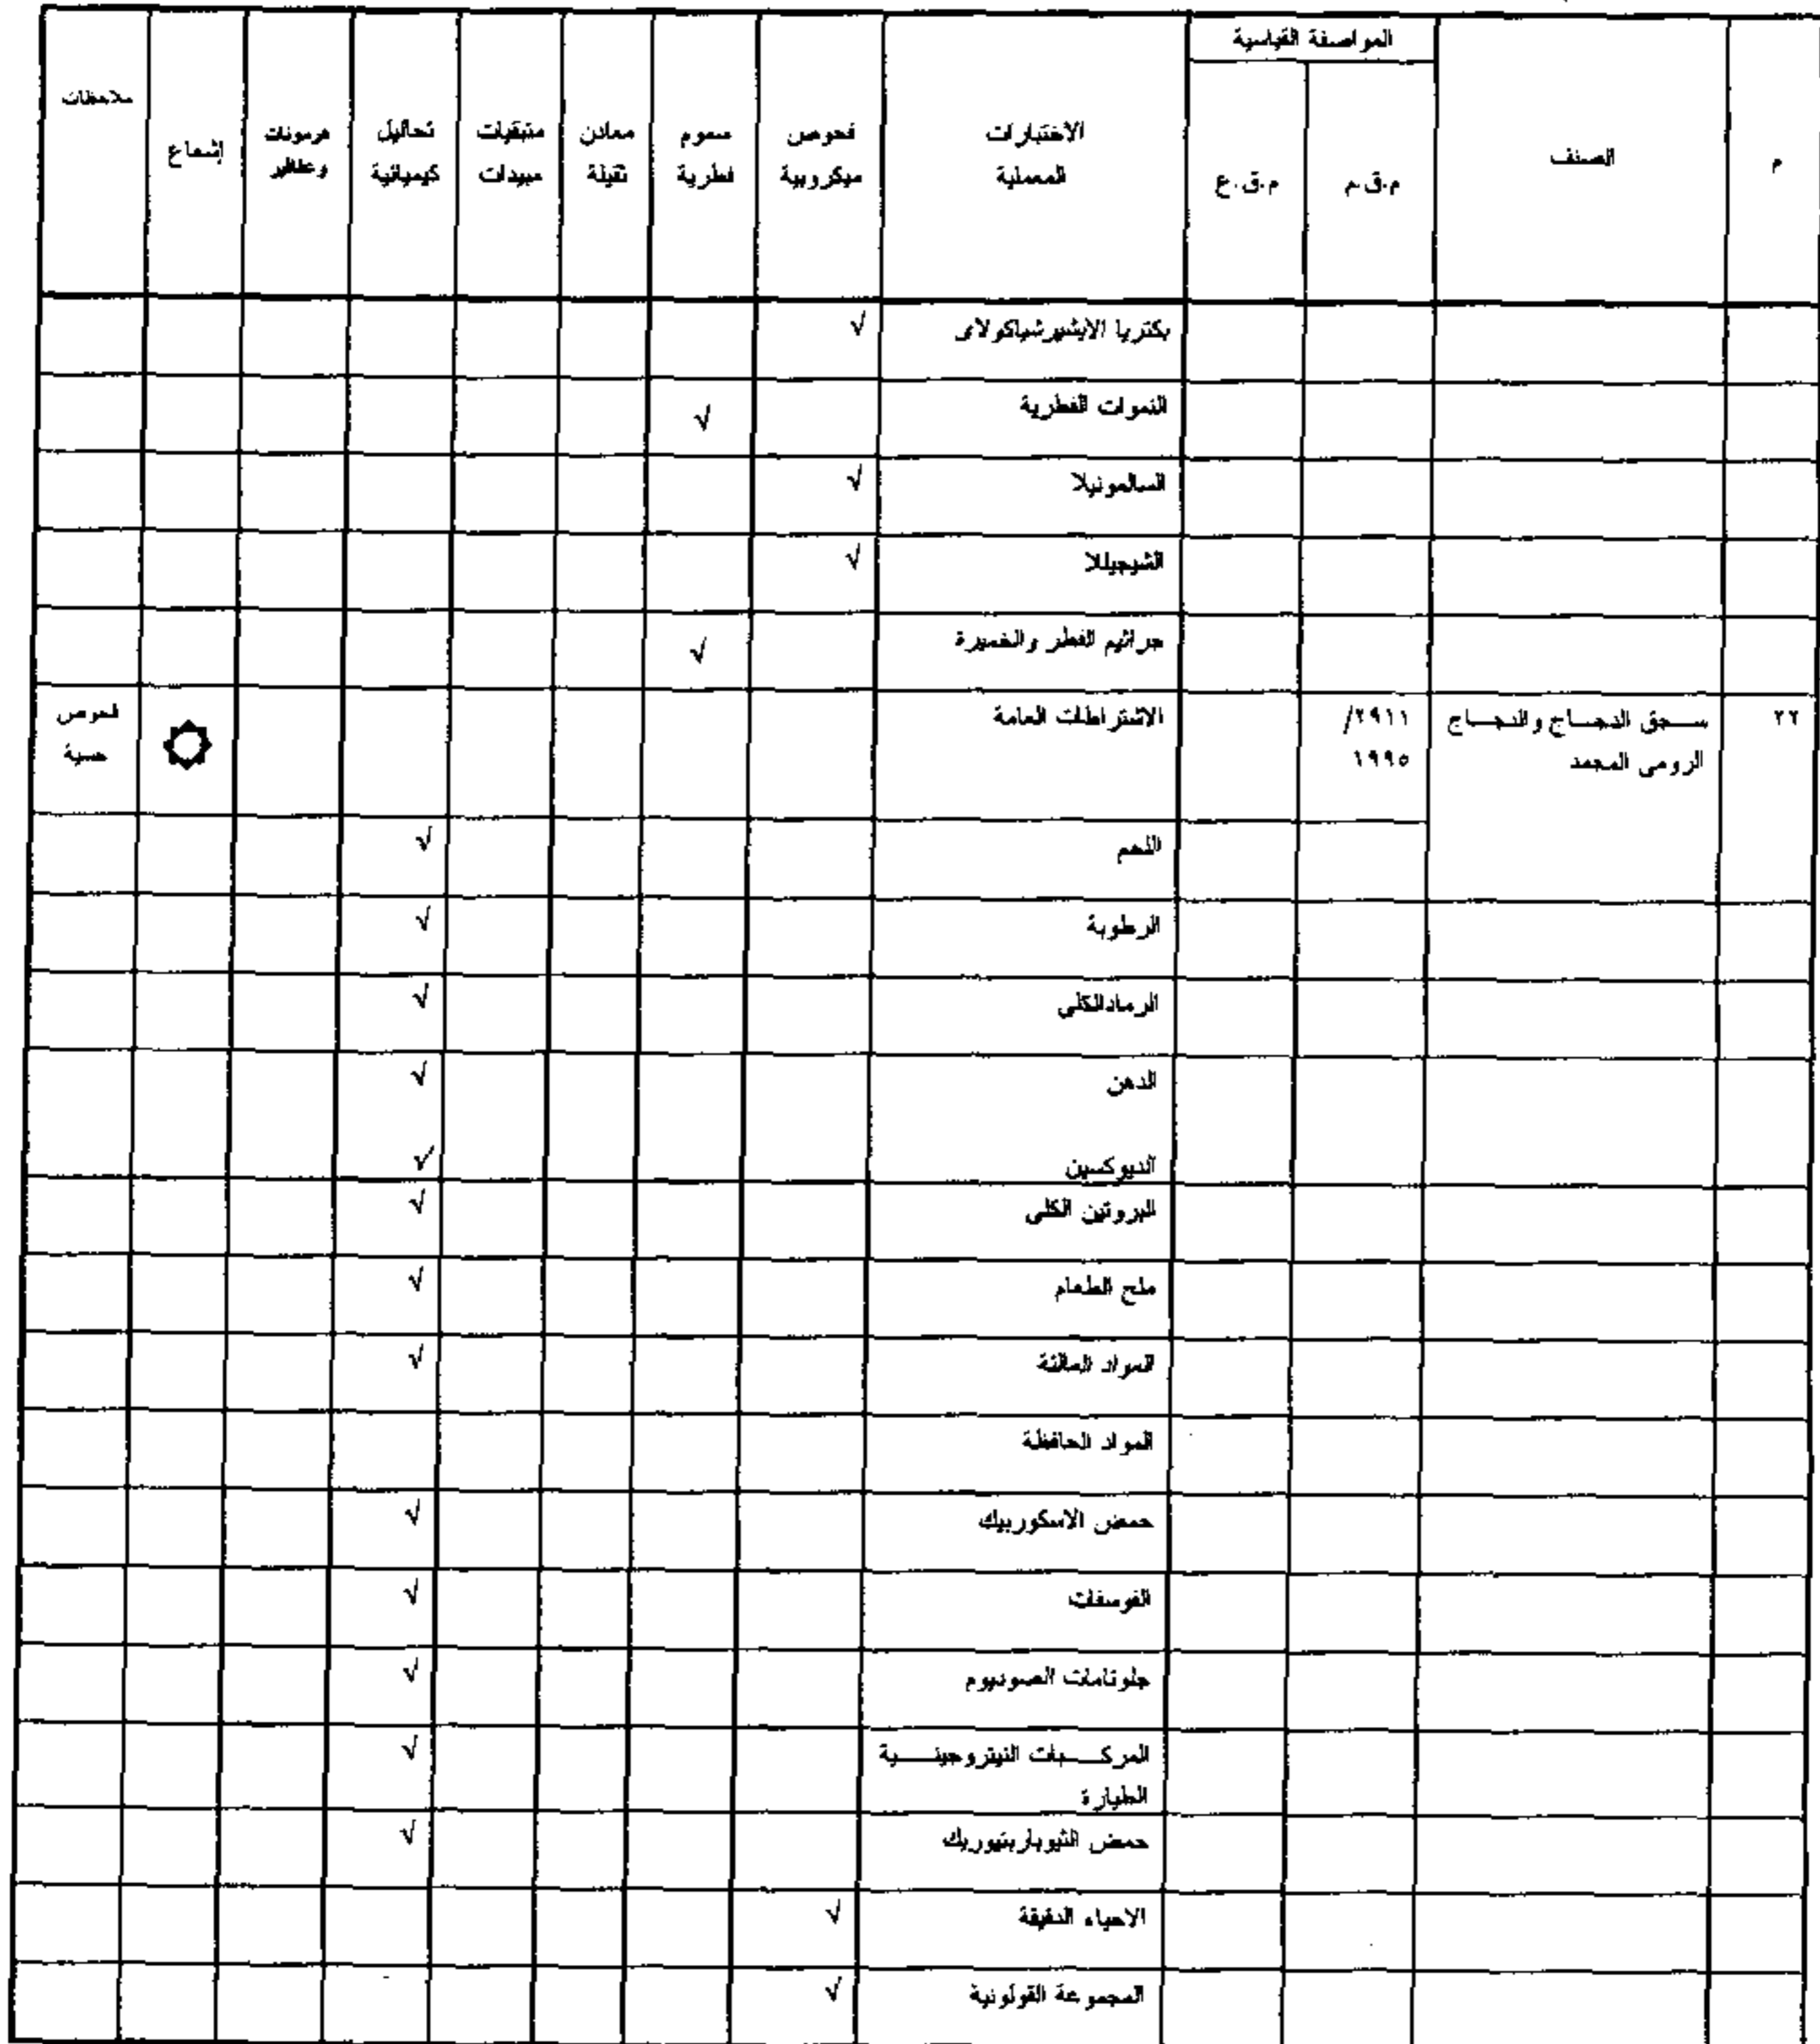 م
الصنف
المواصفة القياسية
م.ق.م
م.ق.ع
الاختبارات المعملية
فحوص ميكروبية
سموم فطرية
معادن ثقيلة
متبقيات مبيدات
تحاليل كيميائية
هرمونات وعقاقير
إشعاع
ملاحظات
بكتريا الايشيرشياكولاى √
النموات الفطرية √
السالمونيلا √
الشيجيللا √
جراثيم الفطر والخميرة √
٢٢ سجق الدجاج والدجاج ٢٩١١/ الاشتراطات العامة فحوص
الرومى المجمد ١٩٩٥ حسية
اللحم √
الرطوبة √
الرمادالكلى √
الدهن √
الديوكسين √
البروتين الكلى √
ملح الطعام √
المواد المالئة √
المواد الحافظة
حمض الاسكوربيك √
الفوسفات √
جلوتامات الصوديوم √
المركبات النيتروجينية √
الطيارة
حمض الثيوباربتيوريك √
الاحياء الدقيقة √
المجموعة القولونية √